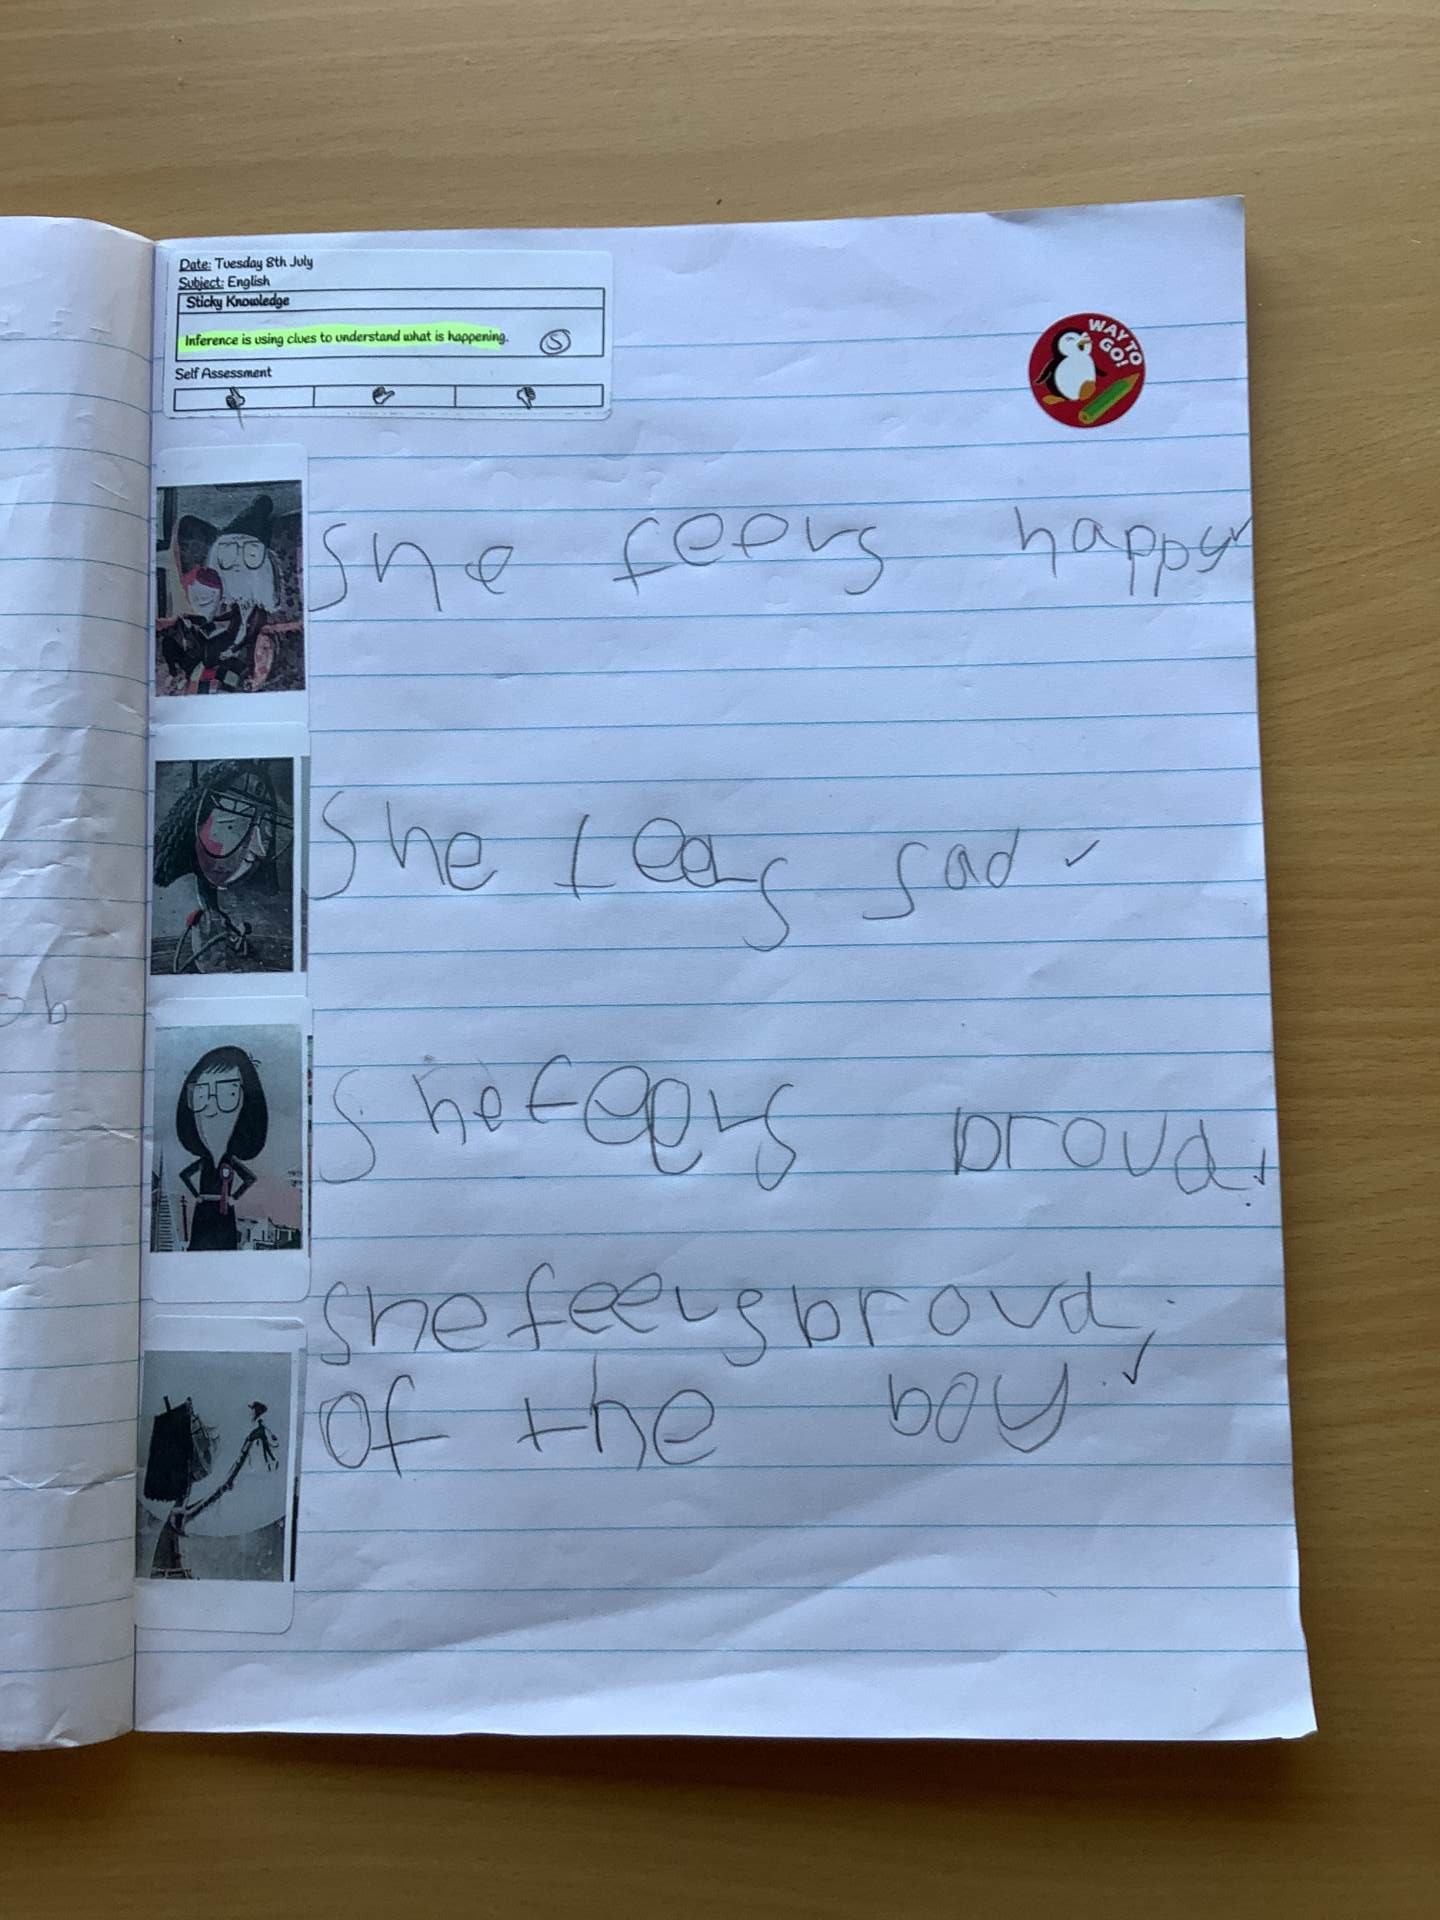 Date: Tuesday 8th July
Subject: English
Sticky Knowledge
Inference is using clues to understand what is happening.
S
Self Assessment
WAY TO
GO!
She feels happy
She feels sad
She feels proud.
ob
She feels proud.
of the boy.